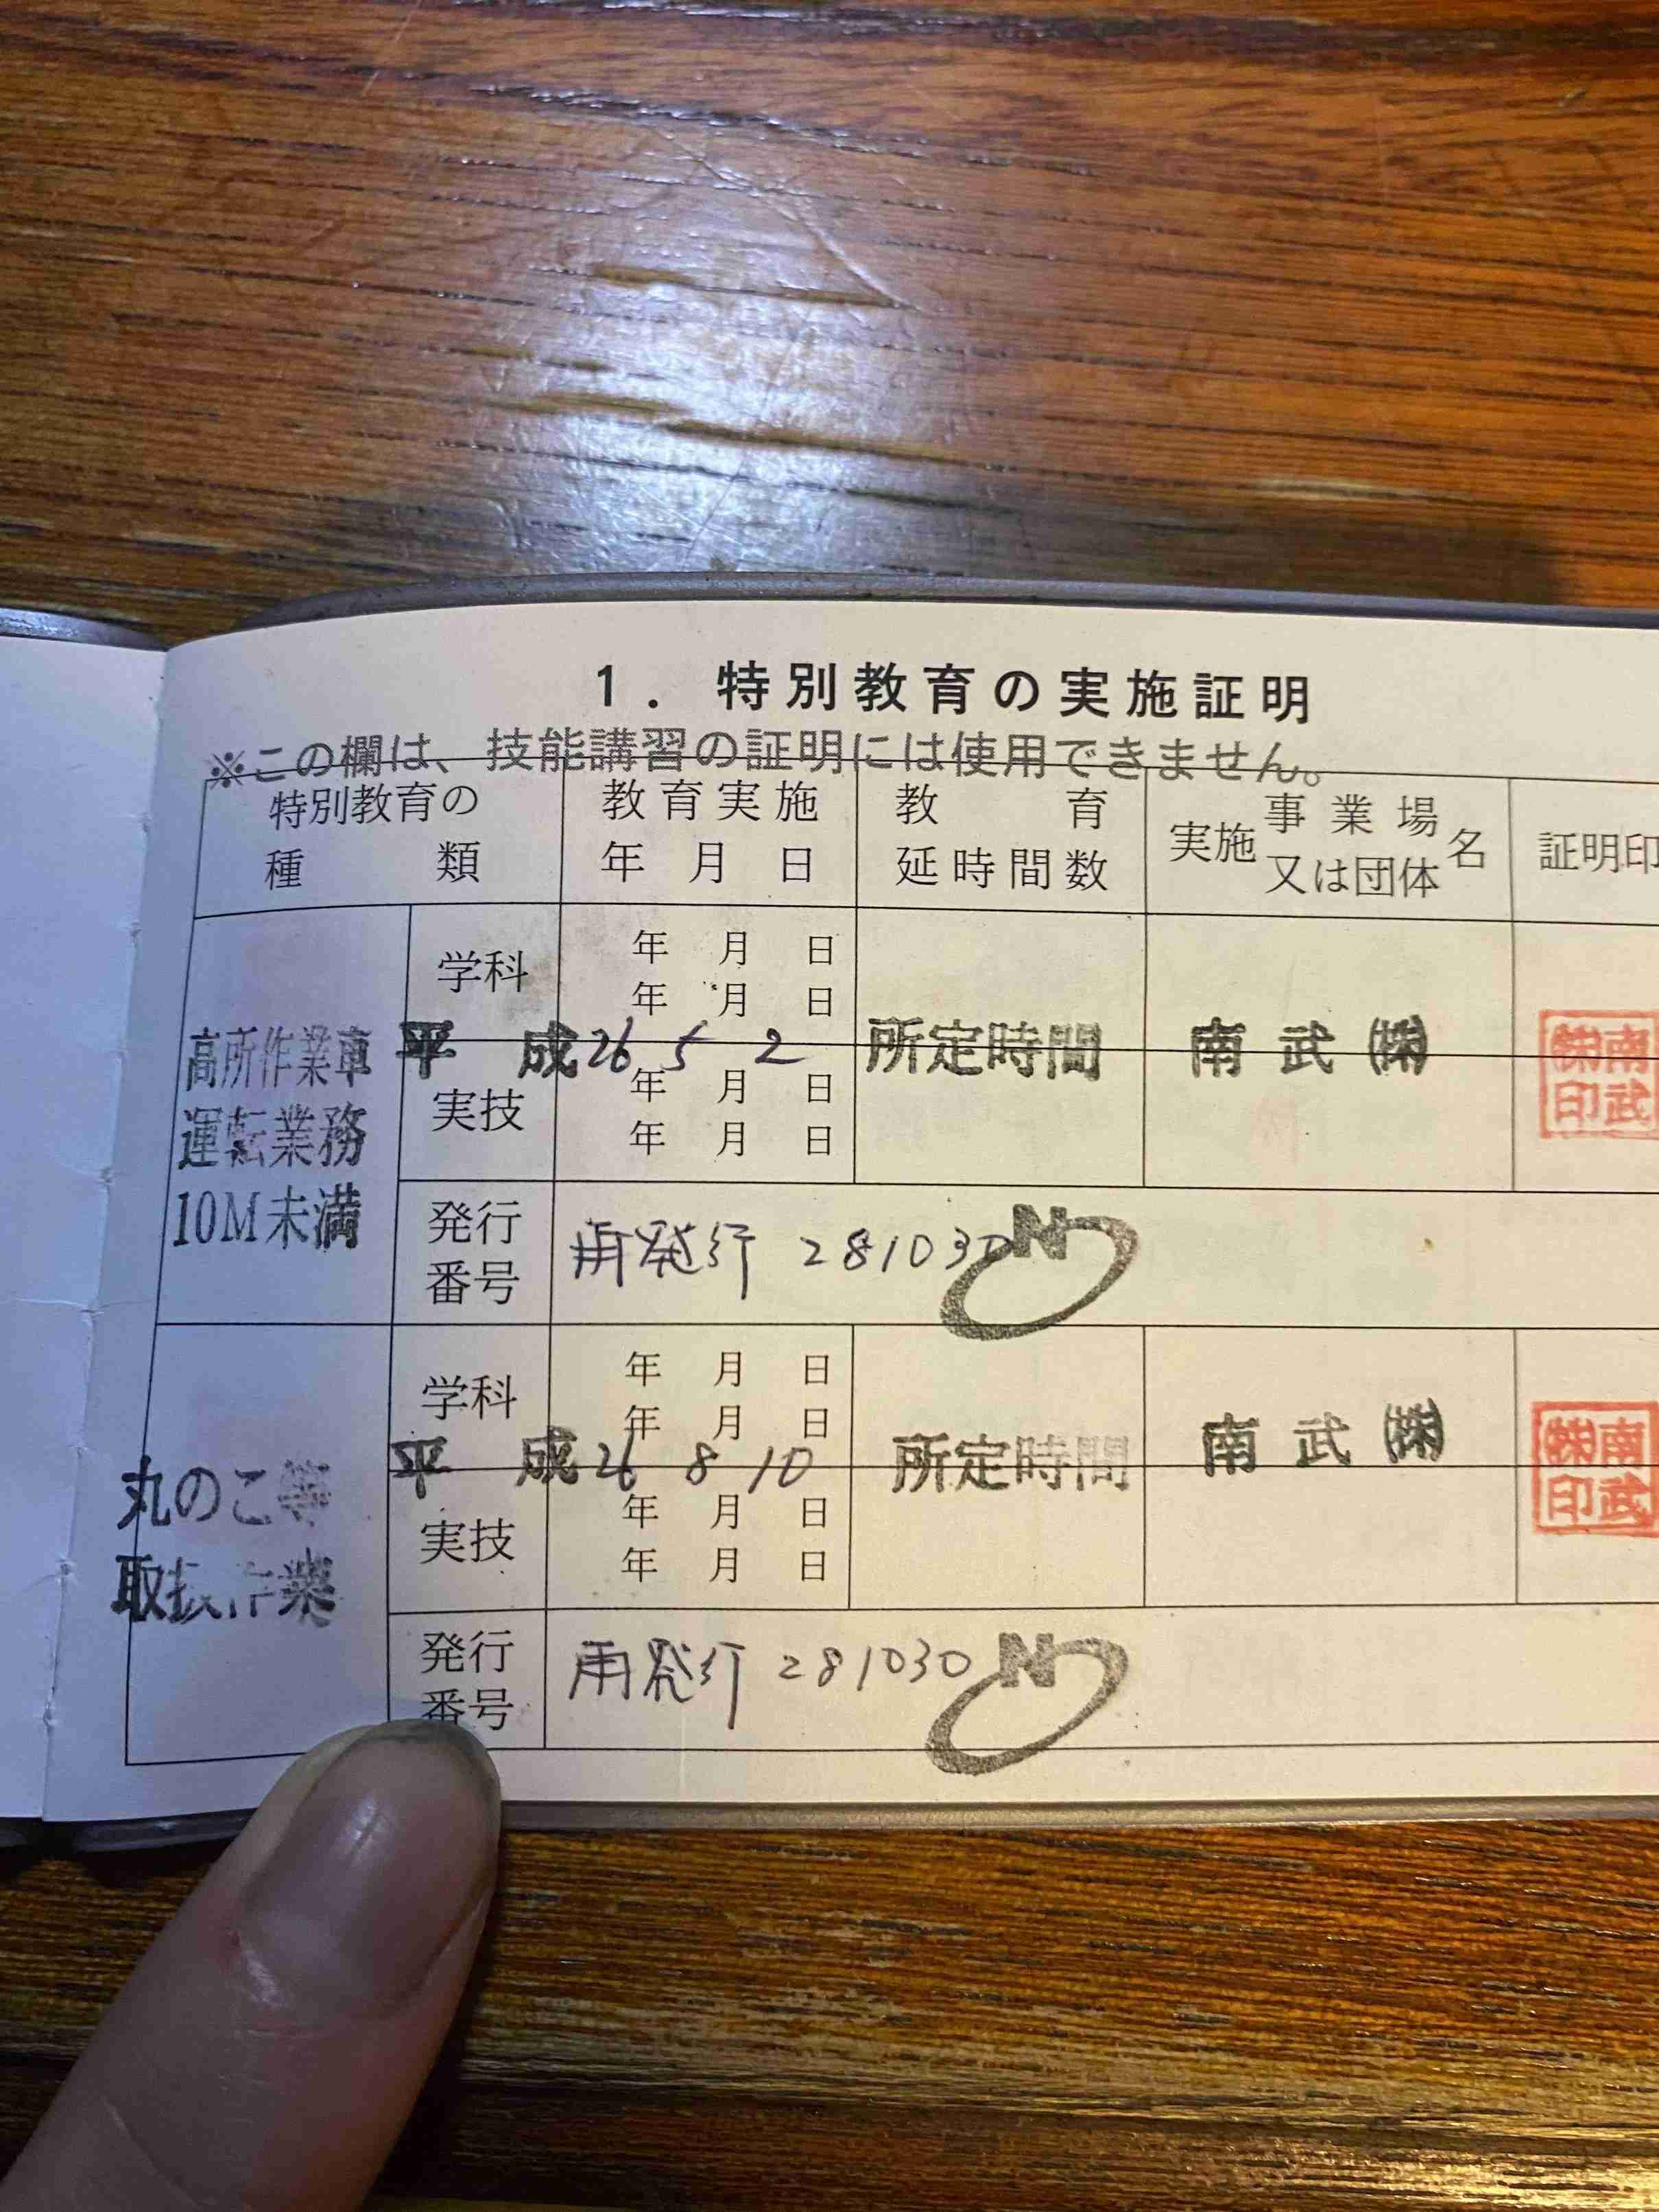 1. 特別教育の実施証明
※この欄は、技能講習の証明には使用できません。
特別教育の種類 教育実施年月日 教育延時間数 実施事業場又は団体名 証明印
学科 年 月 日
年 月 日
高所作業車 平成26 5 2 所定時間 南武㈱ 南武㈱印
運転業務 実技 年 月 日
年 月 日
10M未満
発行番号 再発行 281030 N
学科 年 月 日
年 月 日
丸のこ等 平成26 8 10 所定時間 南武㈱ 南武㈱印
取扱作業 実技 年 月 日
年 月 日
発行番号 再発行 281030 N